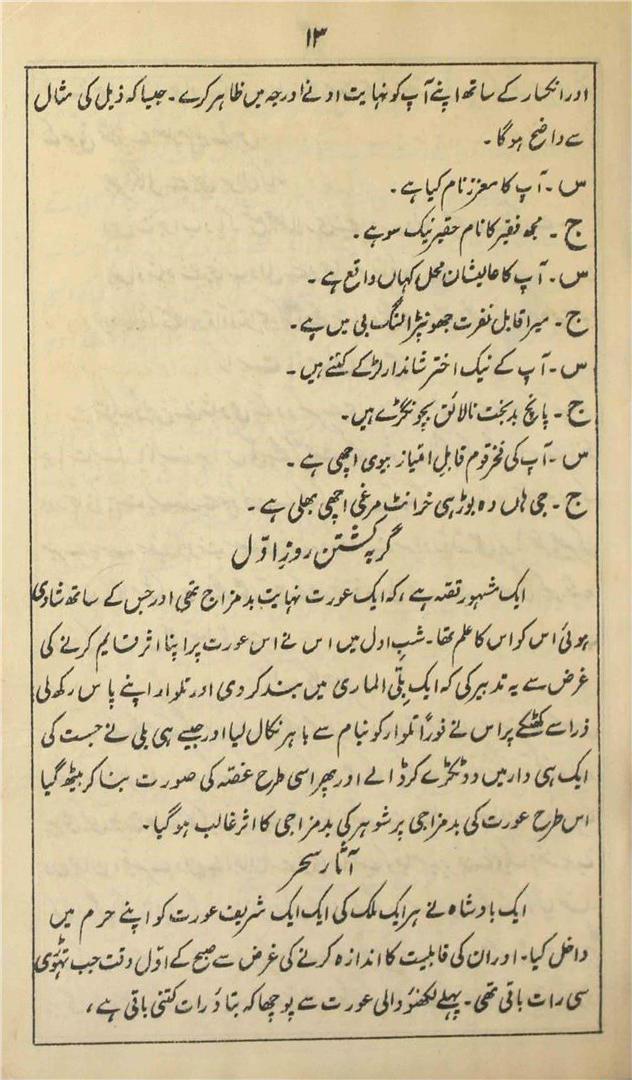 ۱۳
اور انکسار کے ساتھ اپنے آپ کو نہایت ادنےٰ درجہ میں ظاہر کرے۔ جیسا کہ ذیل کی مثال
سے واضح ہوگا۔
س۔ آپ کا معزز نام کیا ہے۔
ج۔ مجھ فقیر کا نام حقیر نیک سو ہے۔
س۔ آپ کا عالیشان محل کہاں واقع ہے۔
ج۔ میرا قابل نفرت جھونپڑا لنگ بی میں ہے۔
س۔ آپ کے نیک اختر شاندار لڑکے کتنے ہیں۔
ج۔ پانچ بدبخت نالائق بچونگڑے ہیں۔
س۔ آپ کی فخر قوم قابلِ امتیاز بیوی اچھی ہے۔
ج۔ جی ہاں وہ بوڑہی خرانٹ مرغی اچھی بھلی ہے۔
گربہ کشتن روزِ اوّل
ایک مشہور قصّہ ہے، کہ ایک عورت نہایت بدمزاج تھی اور جس کے ساتھ شادی
ہوئی اس کو اس کا علم تھا۔ شبِ اول میں اس نے اس عورت پر اپنا اثر قایم کرنے کی
غرض سے یہ تدبیر کی کہ ایک بلّی الماری میں بند کر دی اور تلوار اپنے پاس رکھ لی
ذرا سے کھٹکے پر اس نے فوراً تلوار کو نیام سے باہر نکال لیا اور جیسے ہی بلی نے جست کی
ایک ہی وار میں دو ٹکڑے کر ڈالے اور پھر اسی طرح غصّہ کی صورت بنا کر بیٹھ گیا
اس طرح عورت کی بدمزاجی پر شوہر کی بدمزاجی کا اثر غالب ہو گیا۔
آثار سحر
ایک بادشاہ نے ہر ایک ملک کی ایک ایک شریف عورت کو اپنے حرم میں
داخل کیا۔ اور ان کی قابلیت کا اندازہ کرنے کی غرض سے صبح کے اوّل وقت جب تھوڑی
سی رات باقی تھی۔ پہلے لکھنؤ والی عورت سے پوچھا کہ بتاؤ رات کتنی باقی ہے،